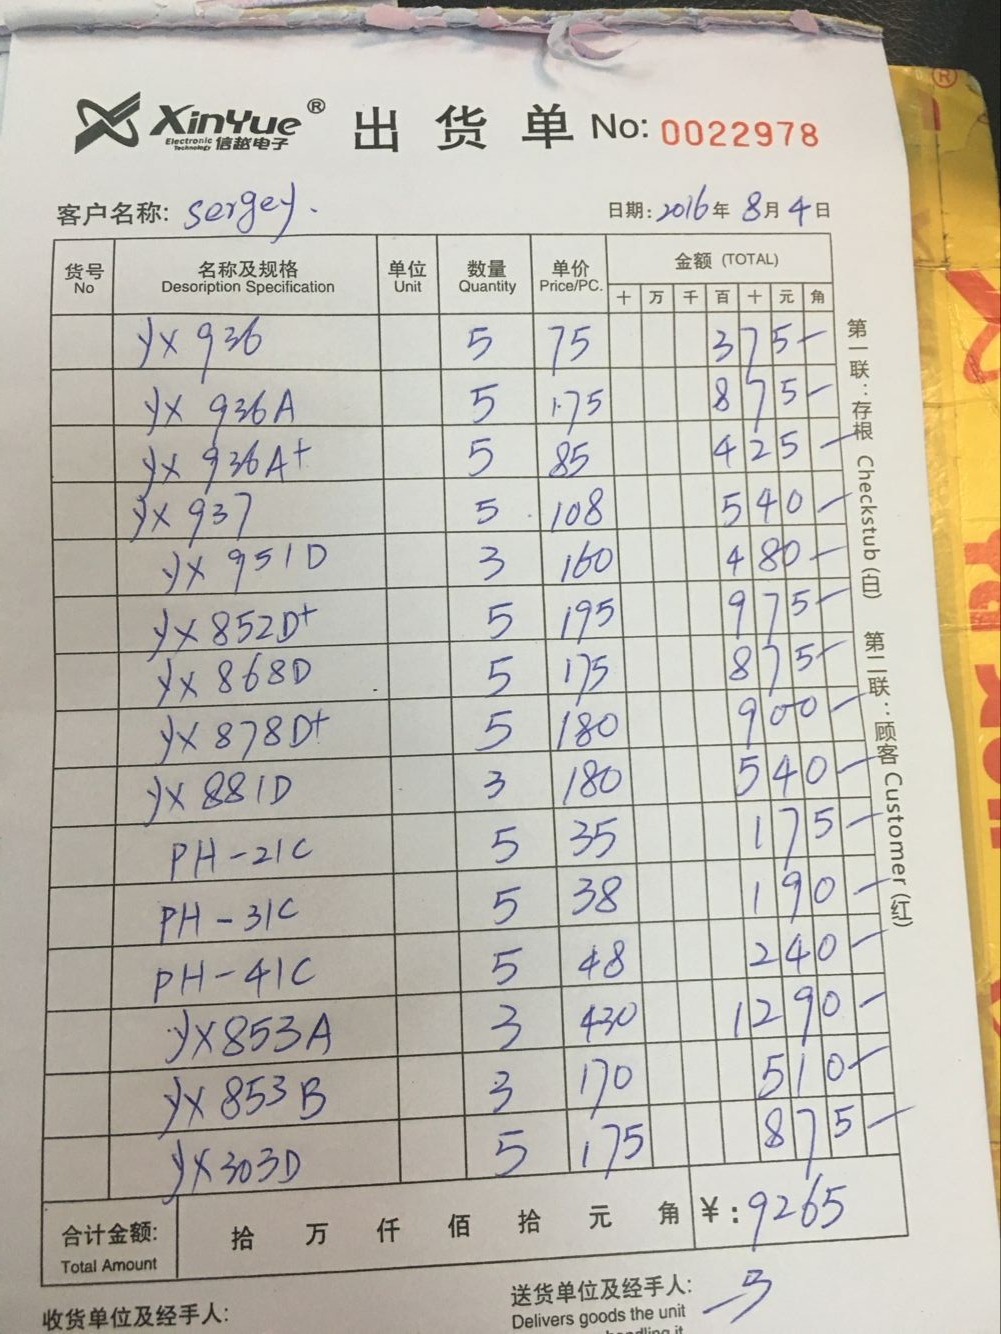 XinYue® 出货单 No: 0022978
Electronic Technology 信越电子
客户名称: sergey. 日期: 2016年 8月 4日
货号 名称及规格 单位 数量 单价 金额 (TOTAL)
No Desoription Specification Unit Quantity Price/PC.
十 万 千 百 十 元 角
yx 936 5 75 375-
yx 936A 5 175 875-
yx 936A+ 5 85 425-
yx 937 5 108 540-
yx 951D 3 160 480-
yx 852D+ 5 195 975-
yx 868D 5 175 875-
yx 878D+ 5 180 900-
yx 881D 3 180 540-
PH-21C 5 35 175-
PH-31C 5 38 190-
PH-41C 5 48 240-
yx853A 3 430 1290-
yx 853B 3 170 510-
yx303D 5 175 875-
合计金额: 拾 万 仟 佰 拾 元 角 ¥: 9265
Total Amount
收货单位及经手人: 送货单位及经手人:
Delivers goods the unit
handling it
第一联:存根 Checkstub (白) 第二联:顾客 Customer (红)